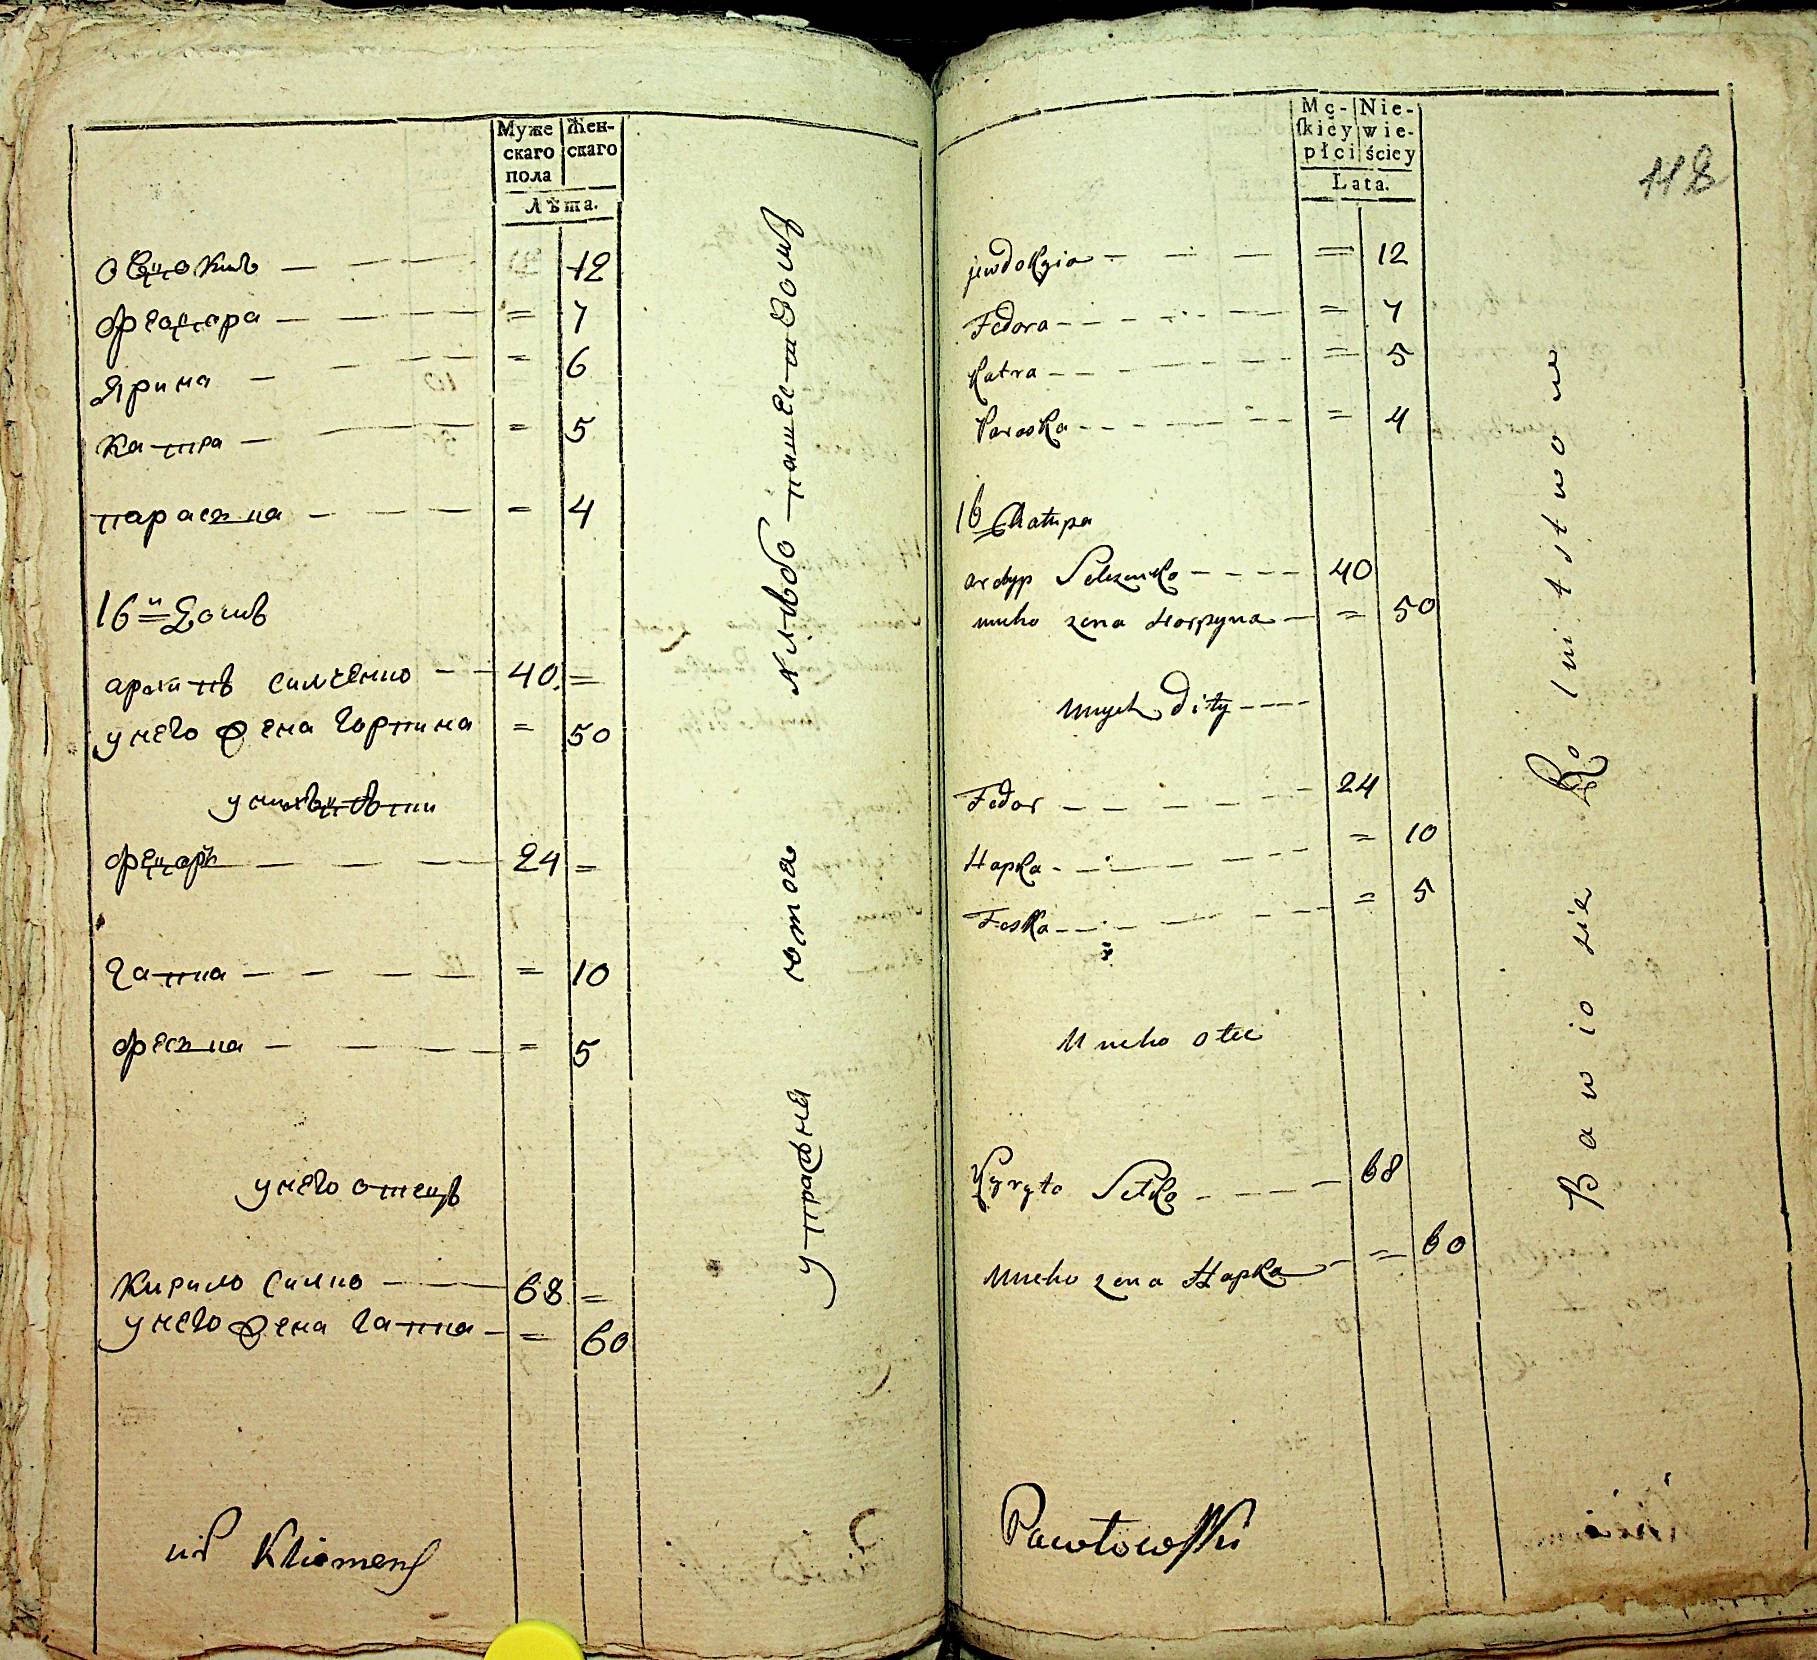 Муже скаго пола
Жен- скаго
Лѣта.
овдокия — — — 12
феодора — — — = 7
Ярина — — — = 6
катра — — — = 5
параска — — — = 4
16 и Дошъ
архипъ силченко — — 40. =
у него жена горпина = 50
у нихъ дѣти
федоръ — — — 24 =
гапка — — — = 10
феска — — — = 5
у него отецъ
кирило силко — — 68 =
у него жена гапка — = 60
Kliemens
Mę- skiéy płci
Nie- wie- ściey
Lata.
118
jewdokyia - — — — = 12
Fedora - - - - - = 7
Katra - - - - - = 5
Paraska - - - - - = 4
16 Chatupa
archyp Selczenko - - - - 40
uneho zena Horpyna — = 50
Unych Dity - - - -
Fedor — — — — 24
Hapka - — — — = 10
Feska - - — — = 5
Uneho otec
Kyryło Sełko - - - — 68
Uneho zena Hapka — = 60
Bawio sie Ko
Pawłowski